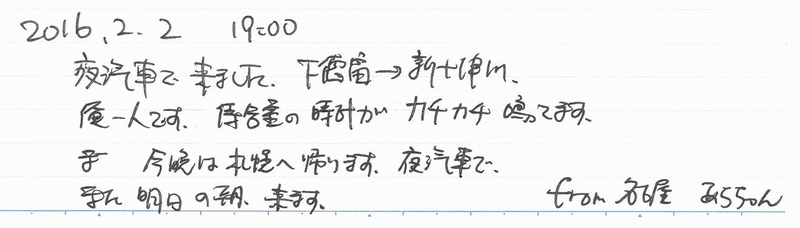 2016.2.2 19:00
夜汽車で来ました。下霧留→新十津川。
俺一人です。待合室の時計がカチカチ鳴ってます。
今晩は札幌へ帰ります。夜汽車で。
また明日の朝、来ます。 from 名古屋